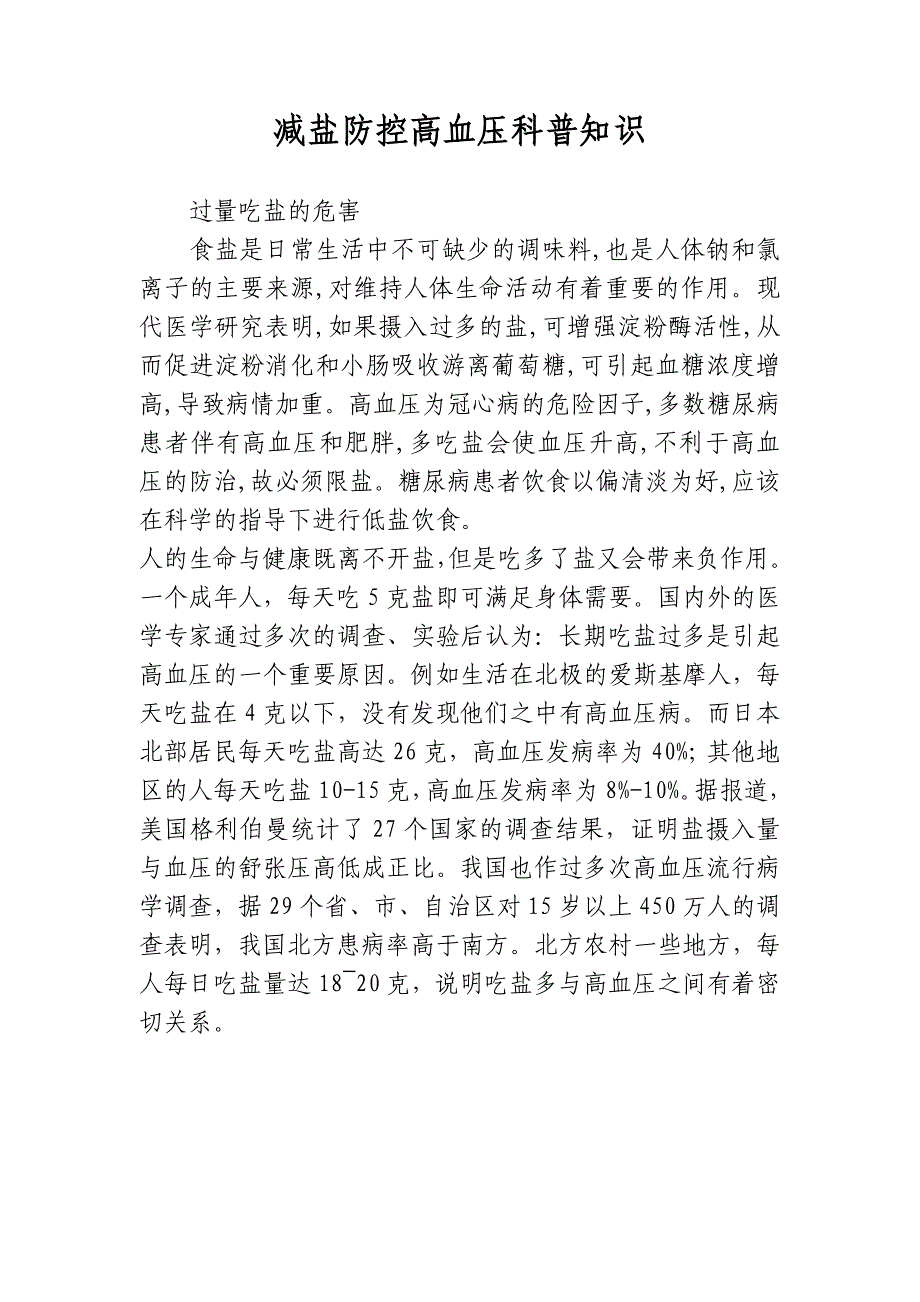 减盐防控高血压科普知识
过量吃盐的危害
食盐是日常生活中不可缺少的调味料,也是人体钠和氯
离子的主要来源,对维持人体生命活动有着重要的作用。现
代医学研究表明,如果摄入过多的盐,可增强淀粉酶活性,从
而促进淀粉消化和小肠吸收游离葡萄糖,可引起血糖浓度增
高,导致病情加重。高血压为冠心病的危险因子,多数糖尿病
患者伴有高血压和肥胖,多吃盐会使血压升高,不利于高血
压的防治,故必须限盐。糖尿病患者饮食以偏清淡为好,应该
在科学的指导下进行低盐饮食。
人的生命与健康既离不开盐,但是吃多了盐又会带来负作用。
一个成年人，每天吃 5 克盐即可满足身体需要。国内外的医
学专家通过多次的调查、实验后认为：长期吃盐过多是引起
高血压的一个重要原因。例如生活在北极的爱斯基摩人，每
天吃盐在 4 克以下，没有发现他们之中有高血压病。而日本
北部居民每天吃盐高达 26 克，高血压发病率为 40%；其他地
区的人每天吃盐 10-15 克，高血压发病率为 8%-10%。据报道，
美国格利伯曼统计了 27 个国家的调查结果，证明盐摄入量
与血压的舒张压高低成正比。我国也作过多次高血压流行病
学调查，据 29 个省、市、自治区对 15 岁以上 450 万人的调
查表明，我国北方患病率高于南方。北方农村一些地方，每
人每日吃盐量达 18¯20 克，说明吃盐多与高血压之间有着密
切关系。